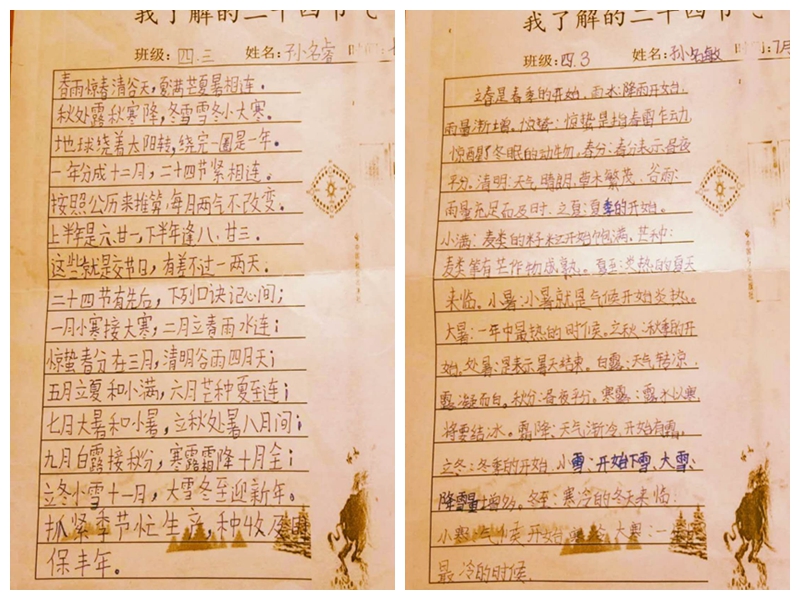 我了解的二十四节气
班级:四.三 姓名:孙名睿 时间:
春雨惊春清谷天,夏满芒夏暑相连。
秋处露秋寒降,冬雪雪冬小大寒。
地球绕着太阳转,绕完一圈是一年。
一年分成十二月,二十四节紧相连。
按照公历来推算,每月两气不改变。
上半年是六、廿一,下半年逢八、廿三。
这些就是交节日,有差不过一两天.
二十四节有先后,下列口诀记心间;
一月小寒接大寒,二月立春雨水连;
惊蛰春分在三月,清明谷雨四月天;
五月立夏和小满,六月芒种夏至连;
七月大暑和小暑,立秋处暑八月间;
九月白露接秋分,寒露霜降十月全;
立冬小雪十一月,大雪冬至迎新年。
抓紧季节忙生产,种收及
保丰年。
我了解的二十四节气
班级:四.3 姓名:孙名敏 时间:7月
立春是春季的开始.雨水:降雨开始,
雨量渐增。惊蛰:惊蛰是指春雷乍动,
惊醒了冬眠的动物.春分:春分表示昼夜
平分.清明:天气晴朗.草木繁茂.谷雨:
雨量充足而及时.立夏:夏季的开始。
小满:麦类的籽粒开始饱满.芒种:
麦类等有芒作物成熟。夏至:炎热的夏天
来临。小暑:小暑就是气候开始炎热。
大暑:一年中最热的时候。立秋:秋季的开
始.处暑:是表示暑天结束。白露:天气转凉,
露凝而白。秋分:昼夜平分。寒露:露水以寒
将要结冰。霜降、天气渐冷,开始有霜。
立冬:冬季的开始.小雪:开始下雪、大雪:
降雪量增多。冬至:寒冷的冬天来临:
小寒:气候开始 大寒:一
最冷的时候.